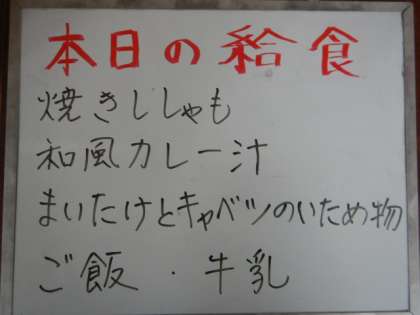 本日の給食
焼きししゃも
和風カレー汁
まいたけとキャベツのいため物
ご飯・牛乳